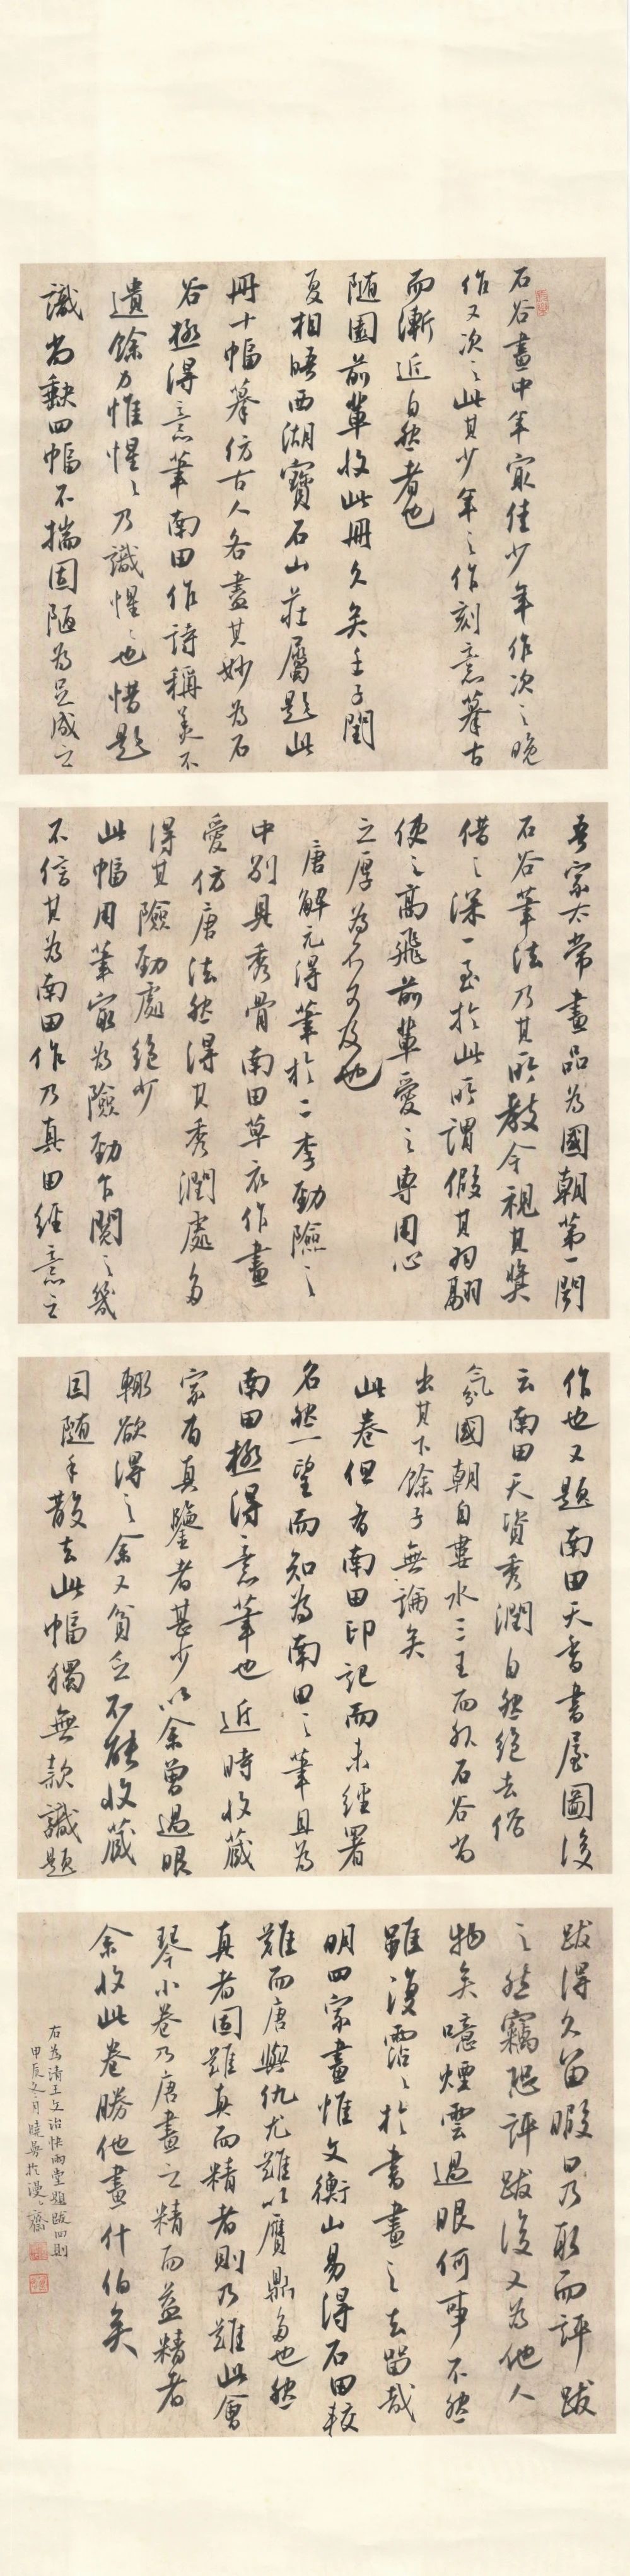 石谷畫中年冣佳少年作次之晚
作又次之此其少年之作刻意摹古
而漸近自然者也
隨園前輩收此冊久矣壬子閏
夏相晤西湖寶石山莊屬題此
冊十幅摹仿古人各盡其妙為石
谷極得意筆南田作詩稱美不
遺餘力惟惺惺乃識惺惺也惜題
識尚缺四幅不揣固陋為足成之
吾家太常畫品為國朝第一閱
石谷筆法乃其所教今視其獎
借之深一至於此所謂假其羽翮
使之高飛前輩愛之專用心
之厚為不可及也
唐解元得筆於二李勁險之
中別具秀骨南田草衣作畫
愛仿唐法然得其秀潤處多
得其險勁處絕少
此幅用筆冣為險勁乍閱之幾
不信其為南田作乃真田經意之
作也又題南田天香書屋圖後
云南田天資秀潤自然絕去俗
氛國朝自婁水三王而外石谷尚
出其下餘子無論矣
此卷但有南田印記而未經署
名然一望而知為南田之筆且為
南田極得意筆也近時收藏
家有真鑒者甚少以余曾過眼
輒欲得之余又貧乏不能收藏
因隨手散去此幅獨無款識題
跋得久留暇日乃取而評跋
之然竊恐評跋後又為他人
物矣噫煙雲過眼何事不然
雖復霑霑於書畫之去留哉
明四家畫惟文衡山易得石田較
難而唐與仇尤難以贋鼎多也然
真者固難真而精者則乃難此會
琴小卷乃唐畫之精而益精者
余收此卷勝他畫什伯矣
右為清王文治快雨堂題跋四則
甲辰冬月曉如於漫漫齋